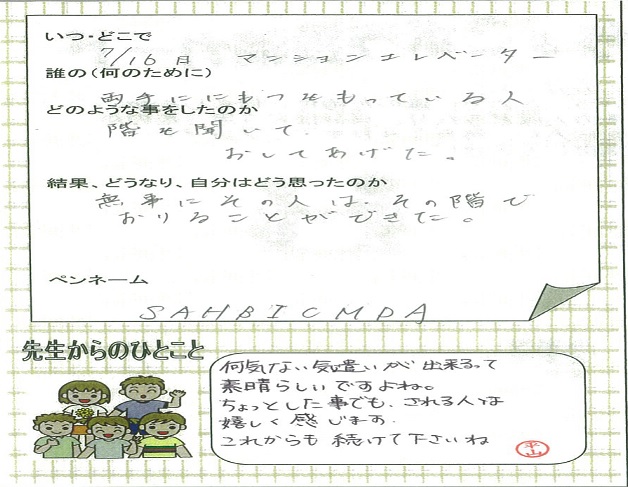 いつ・どこで
7/16日 マンションエレベーター
誰の(何のために)
両手ににもつをもっている人
どのような事をしたのか
階を聞いて.
おしてあげた。
結果、どうなり、自分はどう思ったのか
無事にその人は.その階で
おりることができた。
ペンネーム
SAHBICMDA
先生からのひとこと
何気ない気遣いが出来るって
素晴らしいですよね。
ちょっとした事でも、される人は
嬉しく感じます.
これからも続けて下さいね
平山